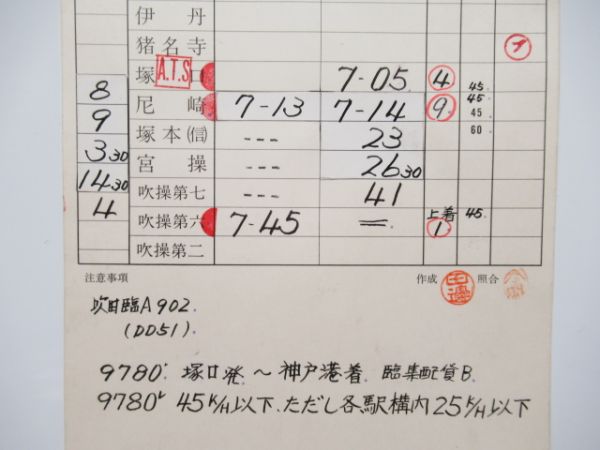 伊丹
猪名寺
塚口 A.T.S 7-05 4 45
8 尼崎 7-13 7-14 9 45 45
9 塚本(信) --- 23 60
3 30 宮操 --- 26 30
14 30 吹操第七 --- 41
4 吹操第六 7-45 = 上着 1 45
吹操第二
注意事項 作成 照合
吹田臨A902.
(DD51).
9780レ 塚口発〜神戸港着. 臨集配貨B.
9780レ 45K/H以下.ただし各駅構内25K/H以下